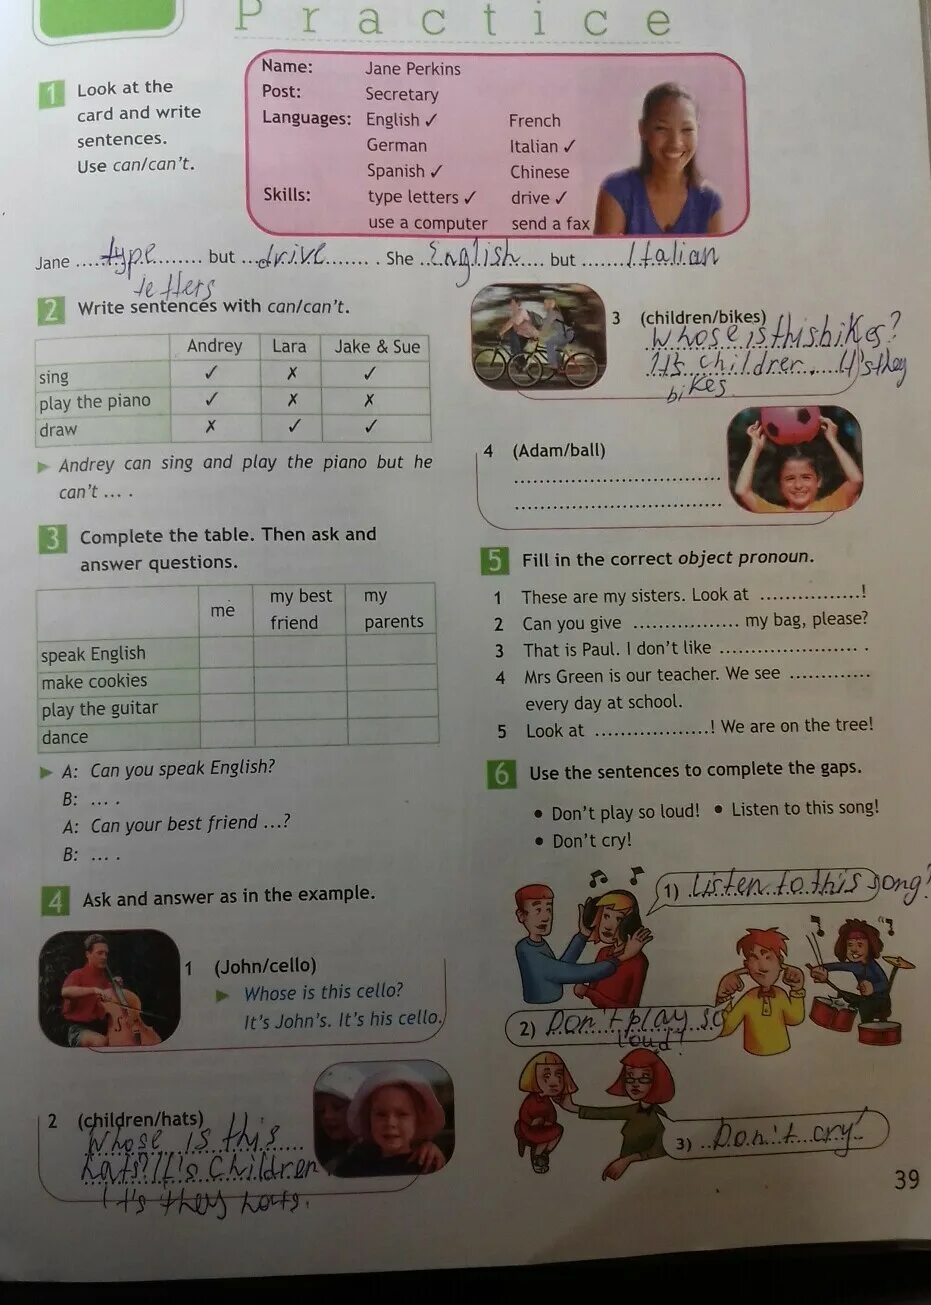 Practice
1 Look at the
card and write
sentences.
Use can/can't.
Name: Jane Perkins
Post: Secretary
Languages: English ✓ French
German Italian ✓
Spanish ✓ Chinese
Skills: type letters ✓ drive ✓
use a computer send a fax
Jane ....type.... but ....drive.... . She ....English.... but ....Italian
letters
2 Write sentences with can/can't.
Andrey Lara Jake & Sue
sing ✓ ✗ ✓
play the piano ✓ ✗ ✗
draw ✗ ✓ ✓
▶ Andrey can sing and play the piano but he
can't ... .
3 Complete the table. Then ask and
answer questions.
me my best friend my parents
speak English
make cookies
play the guitar
dance
▶ A: Can you speak English?
B: ... .
A: Can your best friend ...?
B: ... .
4 Ask and answer as in the example.
1 (John/cello)
▶ Whose is this cello?
It's John's. It's his cello.
2 (children/hats)
Whose is this
hats? It's children
It's they hats.
3 (children/bikes)
Whose is this bikes?
It's children. It's they
bikes
4 (Adam/ball)
5 Fill in the correct object pronoun.
1 These are my sisters. Look at ................!
2 Can you give ................ my bag, please?
3 That is Paul. I don't like ................ .
4 Mrs Green is our teacher. We see ............
every day at school.
5 Look at ................! We are on the tree!
6 Use the sentences to complete the gaps.
• Don't play so loud! • Listen to this song!
• Don't cry!
1) Listen to this song!
2) Don't play so
loud!
3) Don't cry!
39